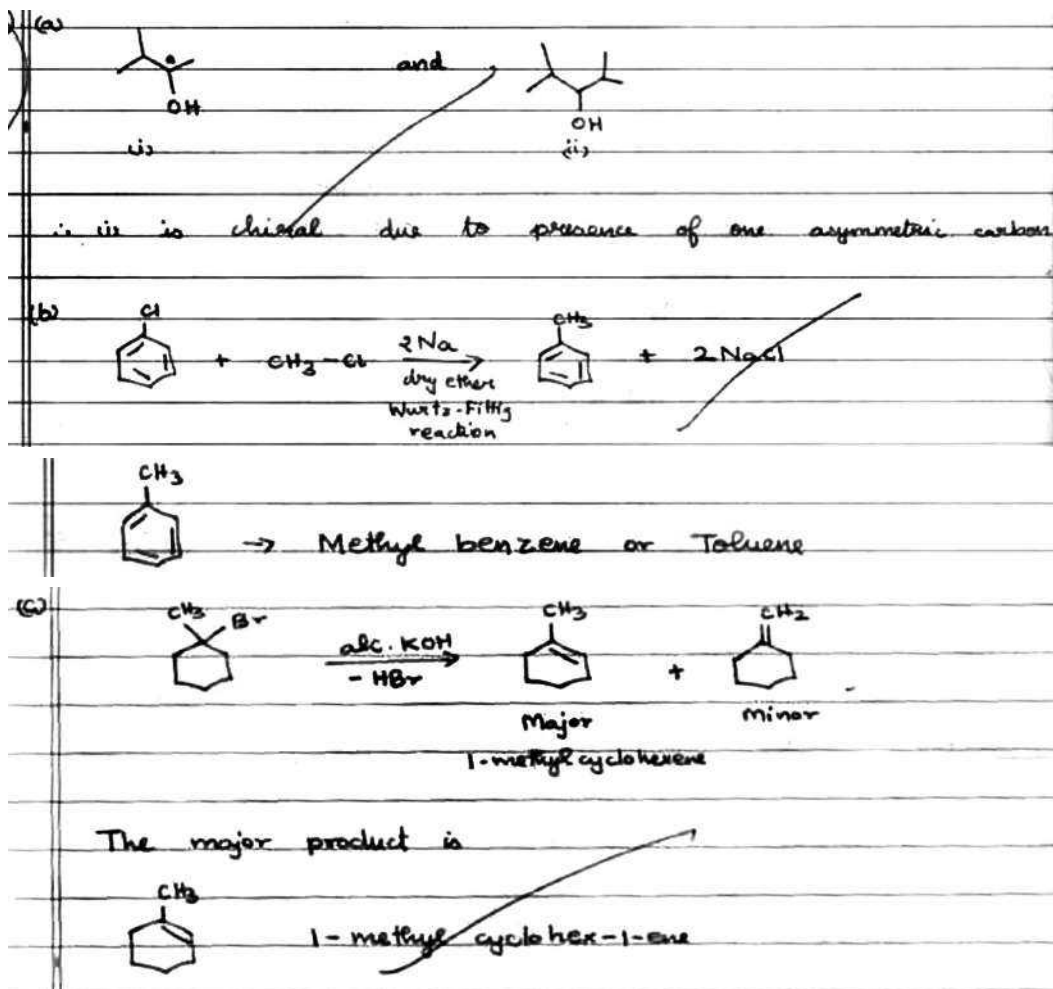 (a)
and
OH
OH
(i)
(ii)
is chiral due to presence of one asymmetric carbon
(b)
Cl
CH3
+ CH3-Cl 2Na + 2NaCl
dry ether
Wurtz-Fittig
reaction
CH3
→ Methyl benzene or Toluene
(c)
CH3 Br
CH3
CH2
alc. KOH
- HBr
+
Major
Minor
1-methylcyclohexene
The major product is
CH3
1-methyl cyclohex-1-ene